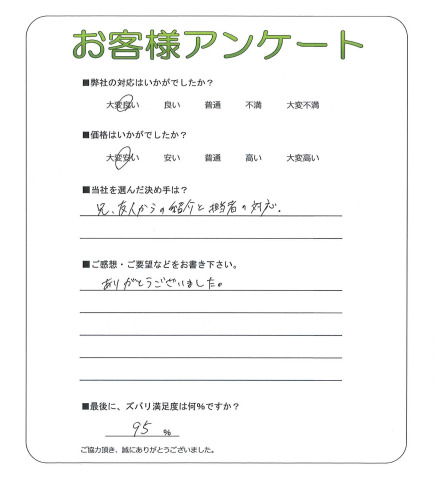 お客様アンケート
■弊社の対応はいかがでしたか？
大変良い 良い 普通 不満 大変不満
■価格はいかがでしたか？
大変安い 安い 普通 高い 大変高い
■当社を選んだ決め手は？
兄、友人からの紹介と担当者の対応。
■ご感想・ご要望などをお書き下さい。
ありがとうございました。
■最後に、ズバリ満足度は何％ですか？
95 ％
ご協力頂き、誠にありがとうございました。